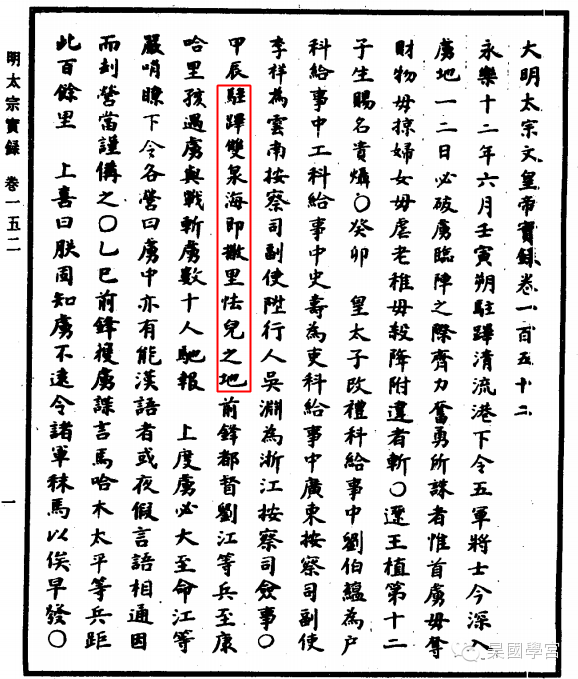 大明太宗文皇帝實錄卷一百五十二
永樂十二年六月壬寅朔駐蹕清流港下令五軍將士今深入
虜地一二日必破虜臨陣之際齊力奮勇所誅者惟首虜毋奪
財物毋掠婦女毋虐老稚毋殺降附違者斬○遼王植第十二
子生賜名貴○癸卯　皇太子改禮科給事中劉伯蘊為戶
科給事中工科給事中史壽為吏科給事中廣東按察司副使
李祥為雲南按察司副使陞行人吳淵為浙江按察司僉事○
甲辰駐蹕雙泉海即撒里怯兒之地前鋒都督劉江等兵至康
哈里孩遇虜與戰斬虜數十人馳報　上度虜必大至命江等
嚴哨瞭下令各營曰虜中亦有能漢語者或夜假言語相通因
而刧營當謹備之○乙巳前鋒獲虜諜言馬哈木太平等兵距
此百餘里　上喜曰朕固知虜不遠令諸軍秣馬以俟早發○
明太宗實錄　卷一五二
一
杲國學宮